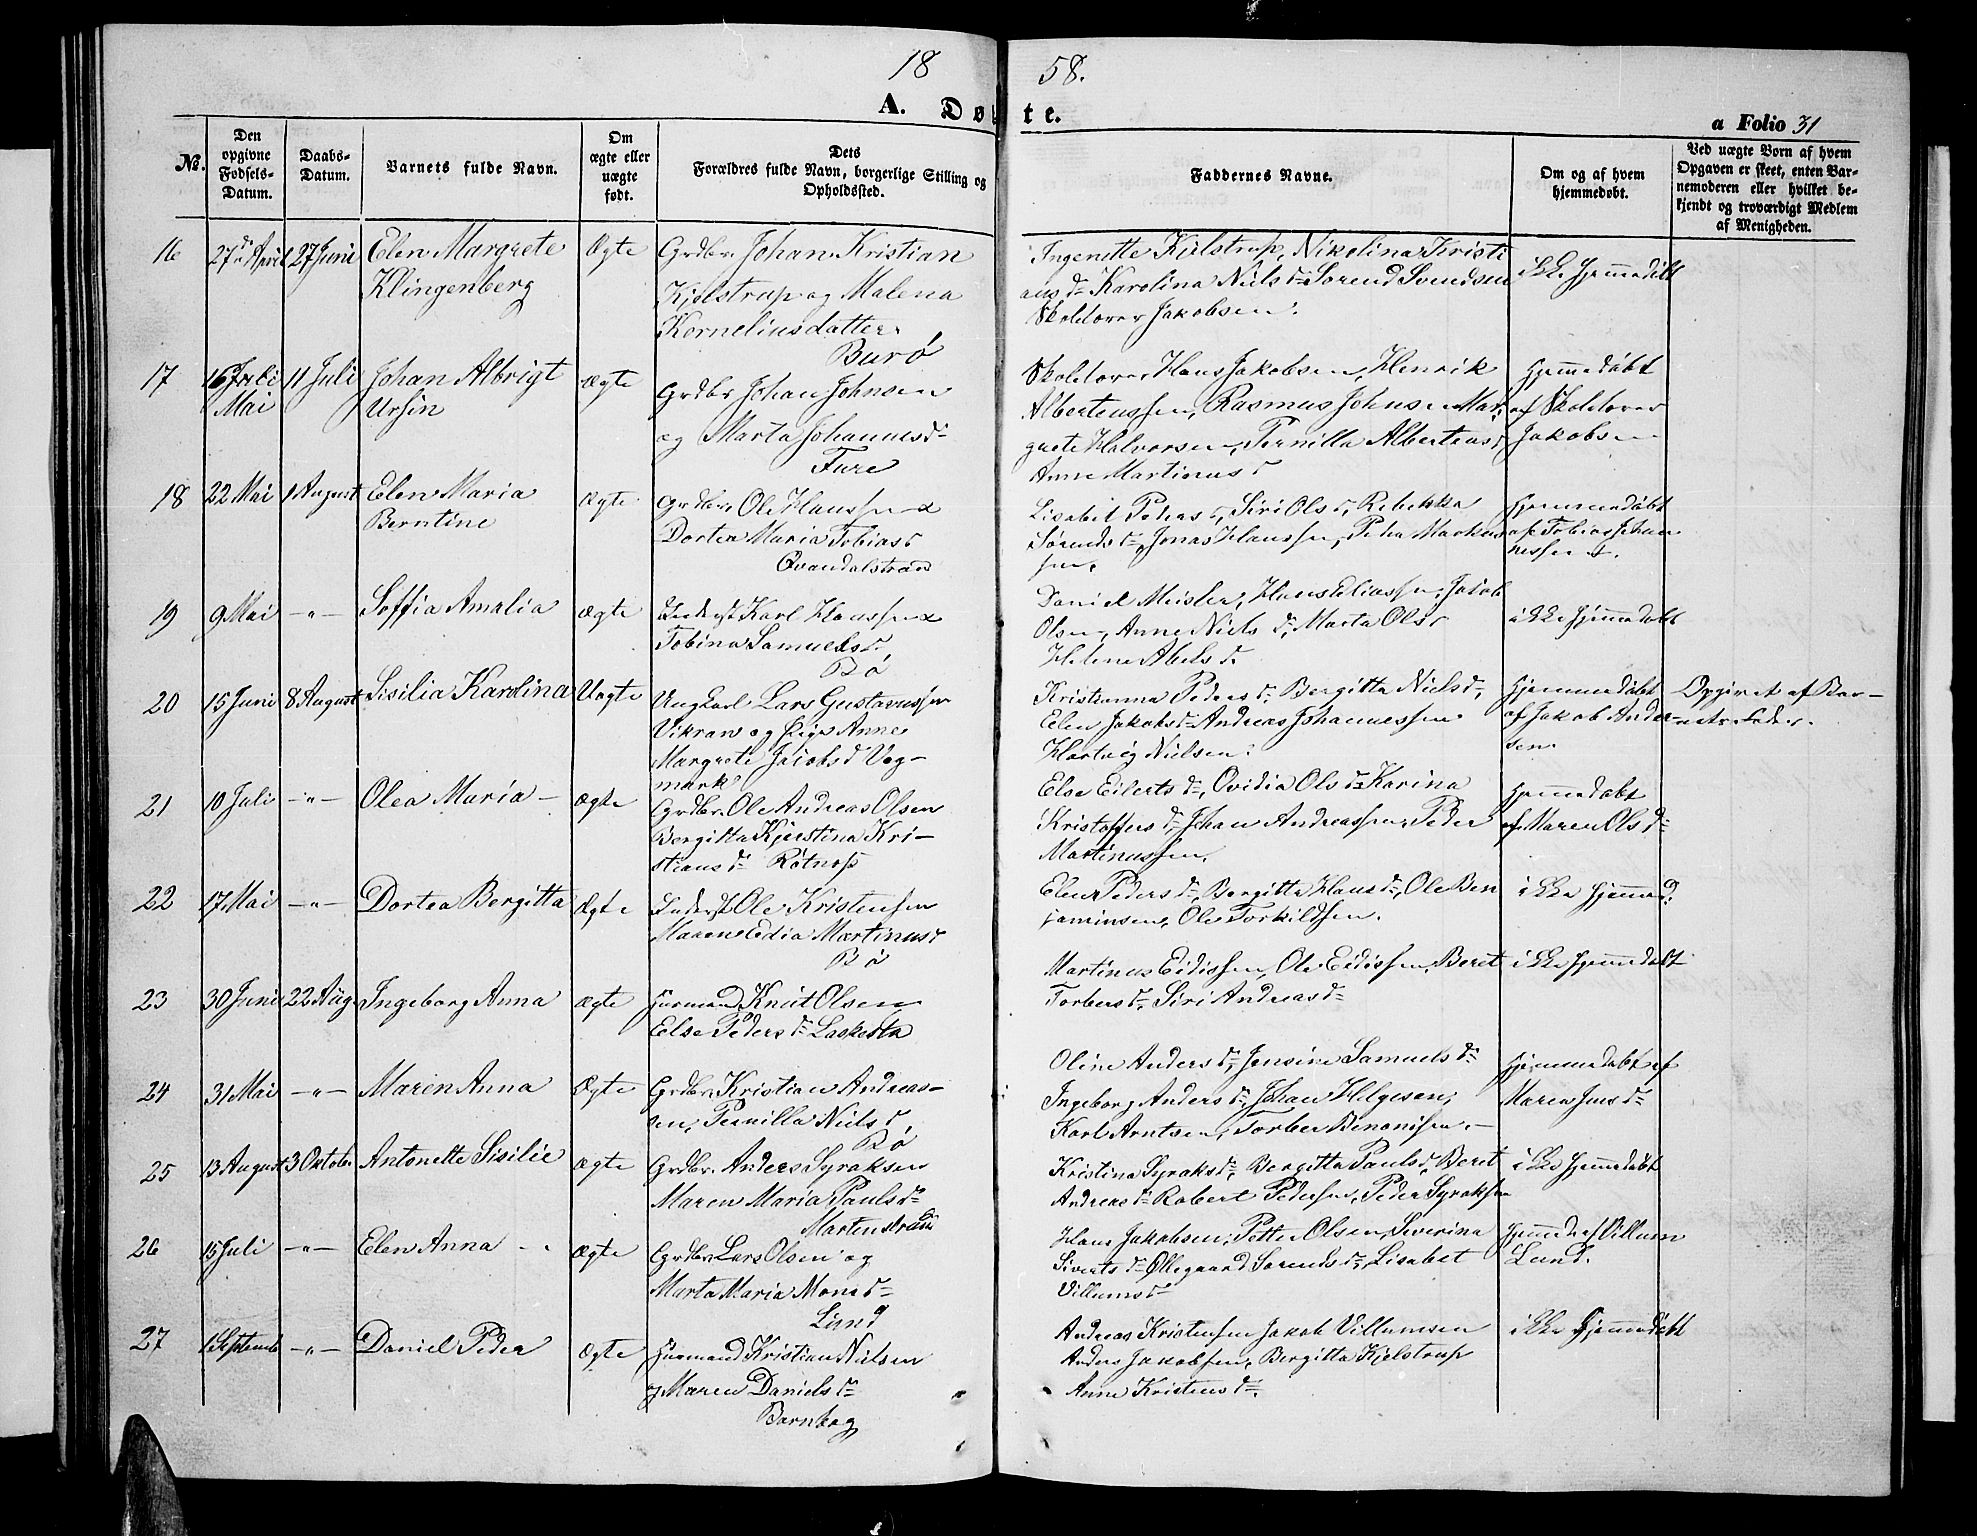 18 58.
A. Døbte.
a Folio 31
No.
Den opgivne Fødsels-Datum.
Daabs-Datum.
Barnets fulde Navn.
Om ægte eller uægte født.
Dets Forældres fulde Navn, borgerlige Stilling og Opholdssted.
Faddernes Navne.
Om og af hvem hjemmedøbt.
Ved uægte Born af hvem Opgaven er skeet, enten Barnemoderen eller hvilket bekjendt og troværdigt Medlem af Menigheden.
16 27 April 27 Juni Elen Margrete Ægte Grdbr. Johan Kristian
Klingenberg Kjelstrup og Malena
Korneliusdatter
Burø
Ingenette Kielstrup, Nikolina Kristi
ans d. Karolina Niels d. Sørend Svendsen
Skolelærer Jakobsen.
ikke hjemmedøbt
17 16 Mai 11 Juli Johan Albrigt ægte Grdbr Johan Johnsen
Ursin og Marta Johannesd.
Fure
Skolelærer Hans Jakobsen, Henrik
Albertussen, Rasmus Johnsen Mar
grete Halvorsen, Pernilla Albertus d
Anne Martinus d
hjemmedøbt
af Skolelærer
Jakobsen
18 22 Mai 1 August Elen Maria ægte Grdbr. Ole Hanssen &
Berntine Dortea Maria Tobias d
Qvandalstrand
Lisabet Peders d, Siri Ols d, Rebekka
Sørends d. Jonas Hanssen, Peder Markus
sen.
hjemmedøbt
af Tobias Johan
nessen
19 9 Mai -"- Soffia Amalia Ægte Inderst Karl Hanssen &
Tobina Samuels d.
Bø
Daniel Meisler, Hans Eliassen, Jakob
Olsen, Anne Niels d. Marta Ols d
Helene Abels d.
ikke hjemmedøbt
20 15 Juni 8 August Sisilia Karolina Uægte Ungkarl Lars Gustavussen
Vikran og Pige Anne
Margrete Jacobs d Vog-
mark
Kristianna Peders d. Bergitta Niels d,
Elen Jakobs d. Andreas Johannessen
Hartvig Nielsen.
hjemmedøbt
af Jakob Ander-
sen.
Opgivet af Bar-
nets Fader.
21 10 Juli -"- Olea Maria ægte Grdbr. Ole Andreas Olsen
Bergitta Kjerstina Kri-
stians d. Røtnæs
Else Eilerts d., Ovidia Ols d. Karina
Kristoffers d. Johan Andreassen, Peder
Martinussen.
hjemmedøbt
af Maren Ols d.
22 17 Mai -"- Dortea Bergitta Ægte Inderst Ole Kristensen
Maren Edia Martinus d
Bø
Elen Peders d. Bergitta Hans d, Ole Ben
jaminsen, Ole Torkildsen.
ikke hjemmed.
23 30 Juni 22 Aug. Ingeborg Anna ægte Huusmand Knut Olsen
Else Peders d. Laskesta
Martinus Eidissen, Ole Eidissen, Beret
Torbers d. Siri Andreas d.
ikke hjemmedøbt
24 31 Mai -"- Maren Anna Ægte Grdbr. Kristian Andreas-
sen, Pernilla Niels d,
Bø
Oline Anders d, Jensine Samuels d.
Ingeborg Anders d. Johan Helgesen,
Karl Arntsen, Torber Benonisen.-
hjemmedøbt af
Maren Jens d.
25 13 August 3 Oktober Antonette Sisilie Ægte Grdbr. Anders Syraksen
Maren Maria Pauls d.
Martenstrand
Kristina Syraks d. Bergitta Pauls d, Beret
Andreas d. Robert Pedersen, Peder Syraksen
ikke hjemmedøbt
26 15 Juli -"- Elen Anna Ægte Grdbr. Lars Olsen og
Marta Maria Mons d.
Lund
Hans Jakobsen, Petter Olsen, Severina
Siverts d. Øllegaard Sørends d. Lisabet
Villums d.
hjemmed. af Villum
Lund.
27 1 Septemb -"- Daniel Peder Ægte Huusmand Kristian Nielsen
og Maren Daniels d.
Andreas Kristensen Jakob Villumsen
Anders Jakobsen, Bergitta Kjelstrup
Anne Kristens d.
ikke hjemmedøbt